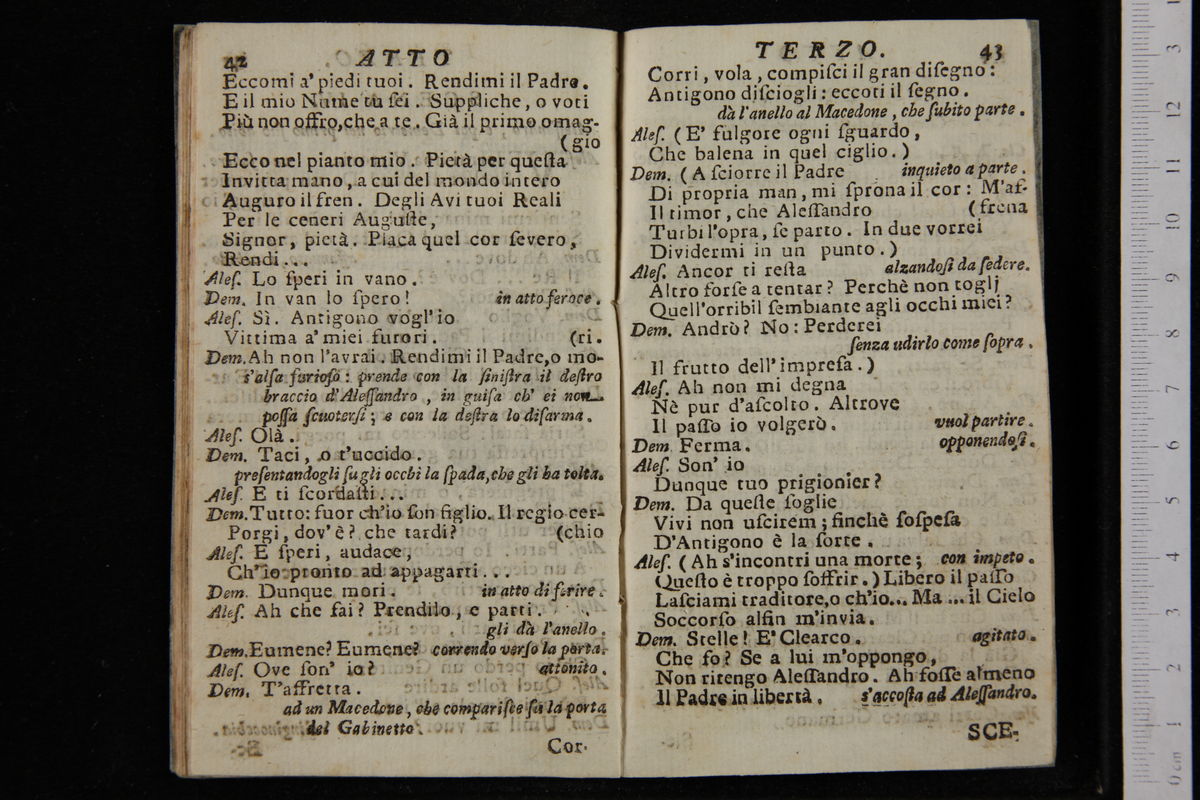 42 ATTO
Eccomi a' piedi tuoi. Rendimi il Padre.
E il mio Nume tu sei. Suppliche, o voti
Più non offro, che a te. Già il primo omag-
(gio
Ecco nel pianto mio. Pietà per queſta
Invitta mano, a cui del mondo intero
Auguro il fren. Degli Avi tuoi Reali
Per le ceneri Auguſte,
Signor, pietà. Placa quel cor ſevero,
Rendi...
Aleſ. Lo ſperi in vano.
Dem. In van lo ſpero! in atto feroce.
Aleſ. Sì. Antigono vogl'io
Vittima a' miei furori. (ri.
Dem. Ah non l'avrai. Rendimi il Padre, o mo-
s'alſa furioſo: prende con la ſiniſtra il deſtro
braccio d'Aleſſandro, in guiſa ch' ei non
poſſa ſcuoterſi; e con la deſtra lo diſarma.
Aleſ. Olà.
Dem. Taci, o t'uccido.
preſentandogli ſu gli occhi la ſpada, che gli ha tolta.
Aleſ. E ti ſcordaſti...
Dem. Tutto: fuor ch'io ſon figlio. Il regio cer-
Porgi, dov'è? che tardi? (chio
Aleſ. E ſperi, audace,
Ch'io pronto ad appagarti...
Dem. Dunque mori. in atto di ferire.
Aleſ. Ah che fai? Prendilo, e parti.
gli dà l'anello.
Dem. Eumene? Eumene? correndo verſo la porta.
Aleſ. Ove ſon' io? attonito.
Dem. T'affretta.
ad un Macedone, che compariſce ſu la porta
del Gabinetto.
Cor-
TERZO. 43
Corri, vola, compiſci il gran diſegno:
Antigono diſciogli: eccoti il ſegno.
dà l'anello al Macedone, che ſubito parte.
Aleſ. (E' fulgore ogni ſguardo,
Che balena in quel ciglio.)
Dem. (A ſciorre il Padre inquieto a parte.
Di propria man, mi ſprona il cor: M'af-
Il timor, che Aleſſandro (frena
Turbi l'opra, ſe parto. In due vorrei
Dividermi in un punto.)
Aleſ. Ancor ti reſta alzandoſi da ſedere.
Altro forſe a tentar? Perchè non toglj
Quell'orribil ſembiante agli occhi miei?
Dem. Andrò? No: Perderei
ſenza udirlo come ſopra.
Il frutto dell'impreſa.)
Aleſ. Ah non mi degna
Nè pur d'aſcolto. Altrove
Il paſſo io volgerò. vuol partire.
Dem. Ferma. opponendoſi.
Aleſ. Son' io
Dunque tuo prigionier?
Dem. Da queſte ſoglie
Vivi non uſcirem; finchè ſoſpeſa
D'Antigono è la ſorte.
Aleſ. (Ah s'incontri una morte; con impeto.
Queſto è troppo ſoffrir.) Libero il paſſo
Laſciami traditore, o ch'io... Ma... il Cielo
Soccorſo alfin m'invia.
Dem. Stelle! E' Clearco. agitato.
Che fo? Se a lui m'oppongo,
Non ritengo Aleſſandro. Ah foſſe almeno
Il Padre in libertà. s'accoſta ad Aleſſandro.
SCE-